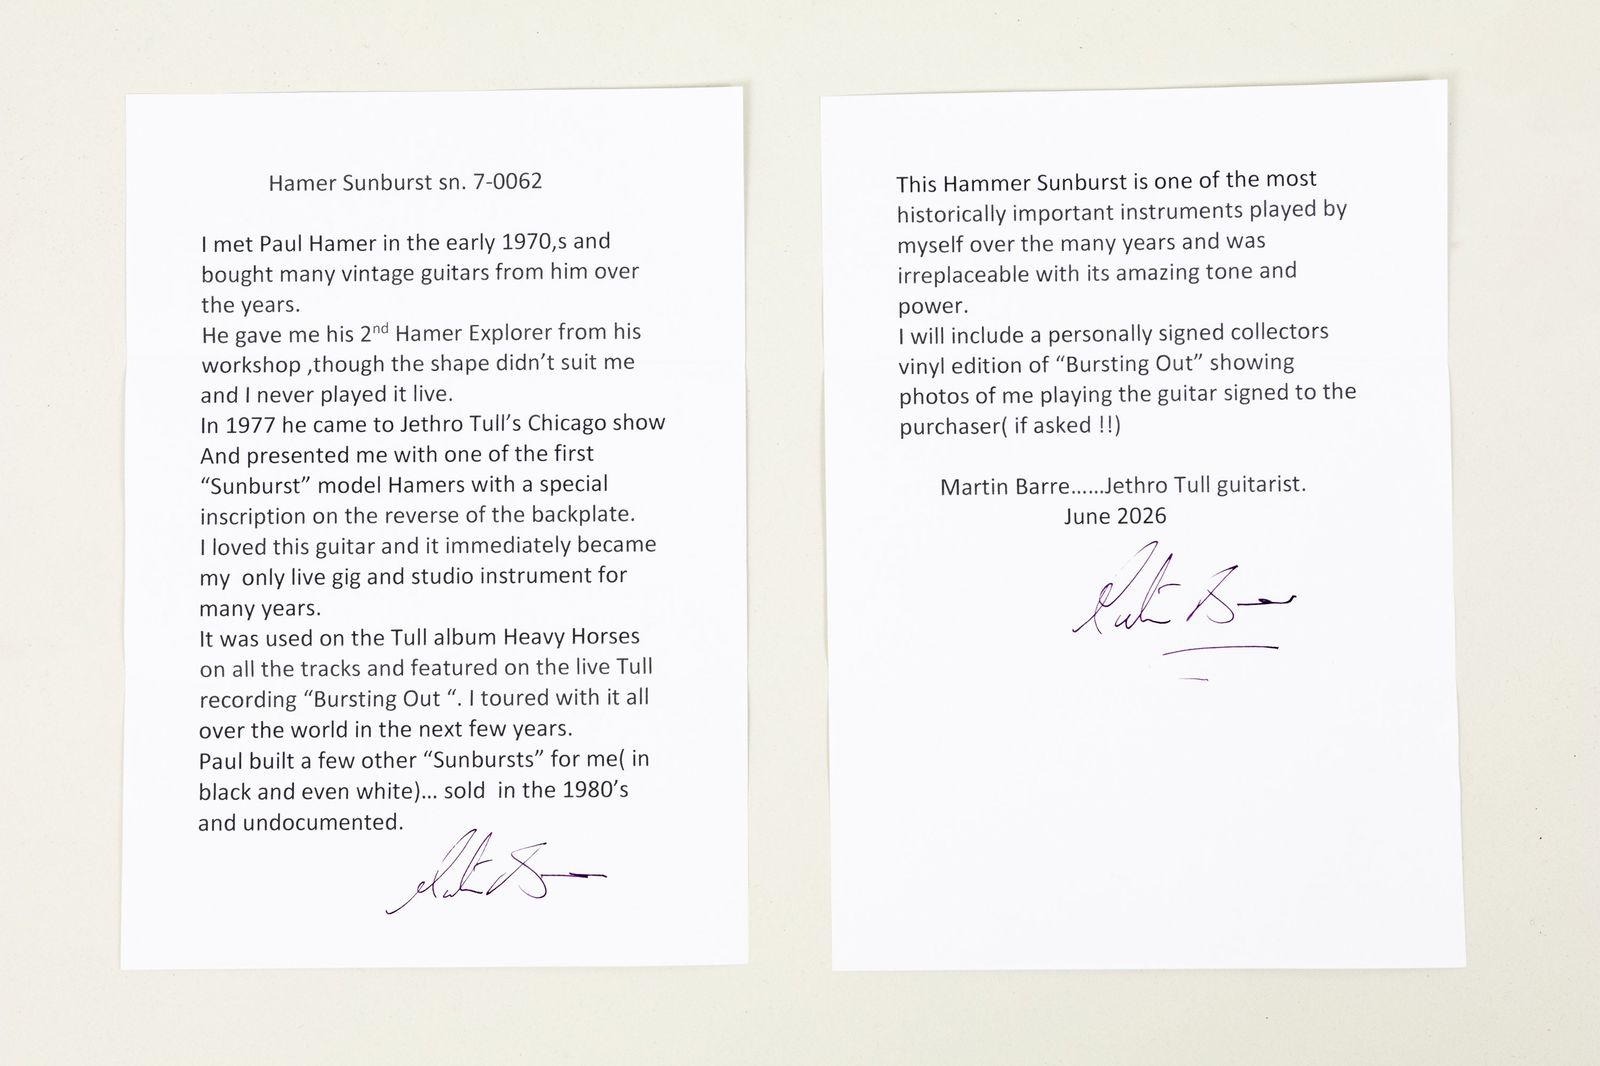 Hamer Sunburst sn. 7-0062
I met Paul Hamer in the early 1970,s and
bought many vintage guitars from him over
the years.
He gave me his 2nd Hamer Explorer from his
workshop ,though the shape didn’t suit me
and I never played it live.
In 1977 he came to Jethro Tull’s Chicago show
And presented me with one of the first
“Sunburst” model Hamers with a special
inscription on the reverse of the backplate.
I loved this guitar and it immediately became
my  only live gig and studio instrument for
many years.
It was used on the Tull album Heavy Horses
on all the tracks and featured on the live Tull
recording “Bursting Out “. I toured with it all
over the world in the next few years.
Paul built a few other “Sunbursts” for me( in
black and even white)... sold  in the 1980’s
and undocumented.
Martin Barre
This Hammer Sunburst is one of the most
historically important instruments played by
myself over the many years and was
irreplaceable with its amazing tone and
power.
I will include a personally signed collectors
vinyl edition of “Bursting Out” showing
photos of me playing the guitar signed to the
purchaser( if asked !!)
Martin Barre......Jethro Tull guitarist.
June 2026
Martin Barre